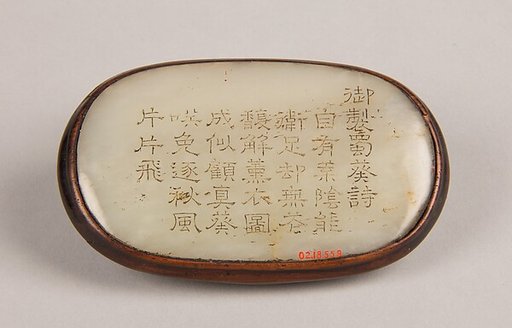 御製蜀葵詩
自有葉陰能
衛足却無花
馥解薰衣圖
成似顧真葵
嘆免逐秋風
片片飛
02.18.559